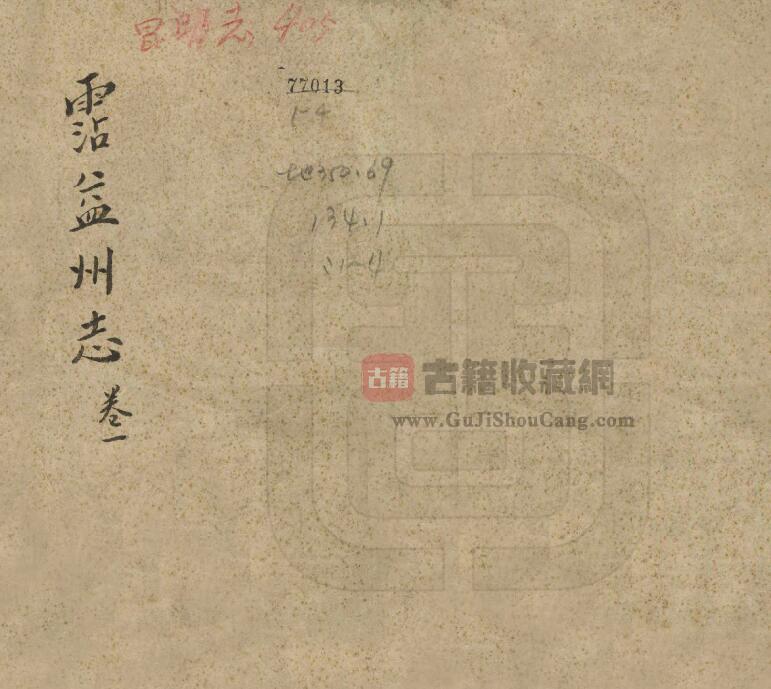 昆明志 405
77013
1-4
地350.69
134.1
:1-4
霑益州志 卷一
古籍
古籍收藏網
www.GuJiShouCang.com